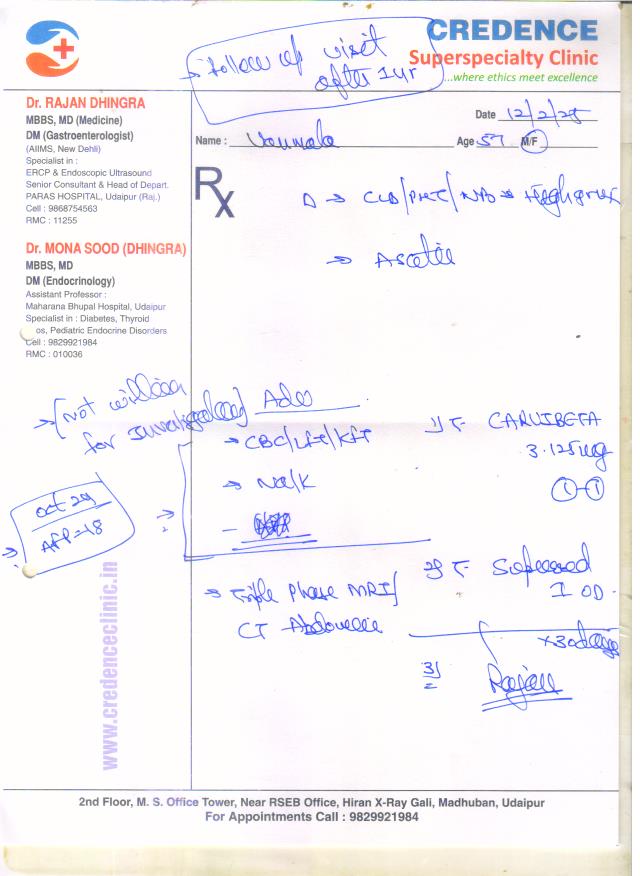 CREDENCE
Superspecialty Clinic
...where ethics meet excellence
Follow up visit
after 1yr
Dr. RAJAN DHINGRA
MBBS, MD (Medicine)
DM (Gastroenterologist)
(AIIMS, New Dehli)
Specialist in :
ERCP & Endoscopic Ultrasound
Senior Consultant & Head of Depart.
PARAS HOSPITAL, Udaipur (Raj.)
Cell : 9868754563
RMC : 11255
Dr. MONA SOOD (DHINGRA)
MBBS, MD
DM (Endocrinology)
Assistant Professor :
Maharana Bhupal Hospital, Udaipur
Specialist in : Diabetes, Thyroid
os, Pediatric Endocrine Disorders
Cell : 9829921984
RMC : 010036
Date 12/2/25
Name : Age 57 M/F
Rx
→ CLD/PHT/
→
→ [Not
for
Adv
→ CBC/LFT/KFT
→ Na/K
→ Triple Phase MRI/
CT
Oct 24
AFP = 18
1) T. CARVIBETA
3.125mg
1-1
2) T.
1 OD
x 30 days
3)
Rajan
www.credenceclinic.in
2nd Floor, M. S. Office Tower, Near RSEB Office, Hiran X-Ray Gali, Madhuban, Udaipur
For Appointments Call : 9829921984